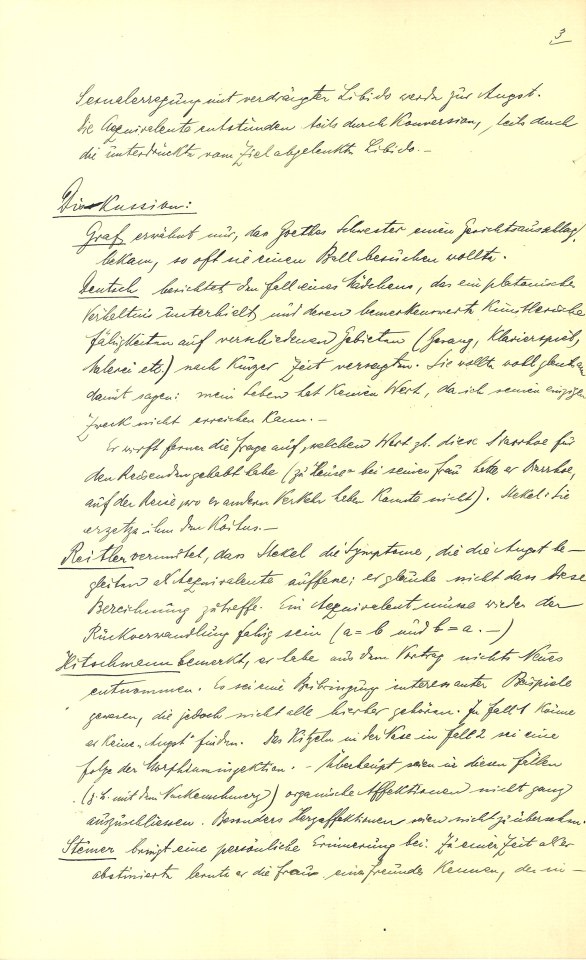 3
Sexualerregung mit verdrängter Libido werde zur Angst.
Die Aequivalente entstünden teils durch Konversion, teils durch
die unterdrückte vom Ziel abgelenkte Libido.—
Diskussion:
Graf erwähnt nur, das Goethes Schwester einen Gesichtsausschlag
bekam, so oft sie einen Ball besuchen wollte.
Deutsch berichtet den Fall eines Mädchens, das ein platonisches
Verhältnis unterhielt und deren bemerkenswerte künstlerische
Fähigkeiten auf verschiedenen Gebieten (Gesang, Klavierspiel,
Malerei etc.) nach kurzer Zeit versagten. Sie wollte wohl gleichsam
damit sagen: mein Leben hat keinen Wert, da ich seinen einzigen
Zweck nicht erreichen kann.—
Er wirft ferner die Frage auf, welchen Wert diese Diarrhoe für
den Reisenden gehabt habe (zu Hause bei seiner Frau hatte er Diarrhoe,
auf der Reise, wo er anderen Verkehr haben konnte nicht). Stekel: Sie
ersetze ihm den Koitus.—
Reitler vermutet, dass Stekel die Symptome, die die Angst be-
gleiten als Aequivalente auffasse; er glaube nicht dass diese
Bezeichnung zutreffe. Ein Aequivalent müsse wieder der
Rückverwandlung fähig sein (a = b und b = a.—)
Hitschmann bemerkt, er habe aus dem Vortrag nichts Neues
entnommen. Es sei eine Beibringung interessanter Beispiele
gewesen, die jedoch nicht alle hierher gehören. In Fall 1 könne
er keine „Angst" finden. Das Kitzeln in der Nase in Fall 2 sei eine
Folge der Morphiuminjektion.— Überhaupt seien in diesen Fällen
(z.B. mit dem Nackenschmerz) organische Affektionen nicht ganz
auszuschliessen. Besonders Herzaffektionen seien nicht zu übersehen.
Steiner bringt eine persönliche Erinnerung bei. Zu einer Zeit als er
abstinierte lernte er die Frau eines Freundes kennen, der im-